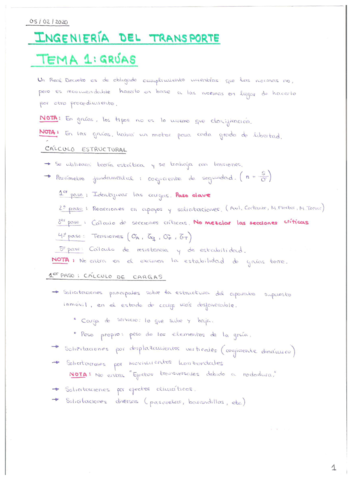 03/02/2020
INGENIERÍA DEL TRANSPORTE
TEMA 1: GRÚAS
Un Real Decreto es de obligado cumplimiento mientras que las normas no,
pero es recomendable hacerlo en base a las normas en lugar de hacerlo
por otro procedimiento.
NOTA: En grúas, los tipos no es lo mismo que
NOTA: En las grúas, habrá un motor para cada grado de libertad.
CÁLCULO ESTRUCTURAL
→ Se utilizan teoría estática y se trabaja con barras.
→ Parámetro fundamental: coeficiente de seguridad.
1er paso: Idealizar las cargas. Paso clave
2º paso: Reacciones en apoyos y solicitaciones.
3er paso: Cálculo de secciones críticas. No mezclar las secciones críticas
4º paso: Tensiones
5º paso: Cálculo de resistencia y de estabilidad.
NOTA: No entra en el examen la estabilidad de grúas torre.
1er PASO: CÁLCULO DE CARGAS
→ Solicitaciones principales sobre la estructura del aparato supuesto
inmóvil, en el estado de carga más desfavorable.
* Carga de servicio: lo que sube y baja.
* Peso propio: peso de los elementos de la grúa.
→ Solicitaciones por desplazamientos verticales
→ Solicitaciones por movimientos horizontales
NOTA: no entra "Efectos transversales debido a rodadura."
→ Solicitaciones por efectos climáticos.
→ Solicitaciones diversas (pasarelas, barandillas, etc)
1